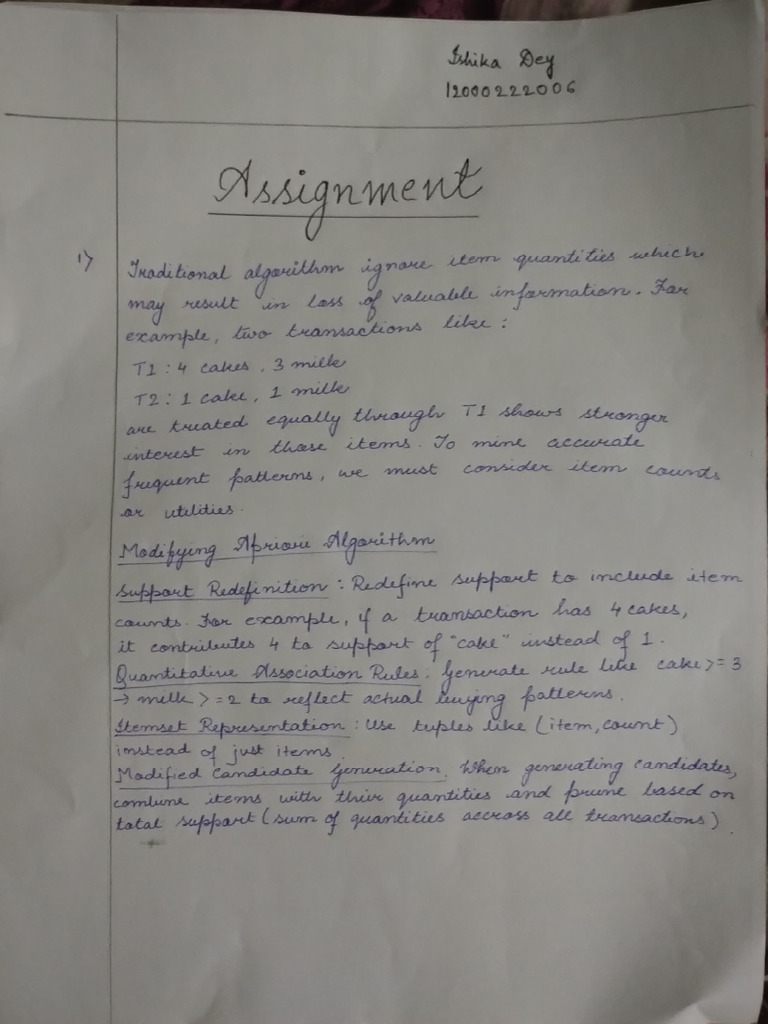 Ishika Dey
12000222006
Assignment
1)
Traditional algorithm ignore item quantities which
may result in loss of valuable information. For
example, two transactions like :
T1 : 4 cakes, 3 milk
T2 : 1 cake, 1 milk
are treated equally through T1 shows stronger
interest in those items. To mine accurate
frequent patterns, we must consider item counts
or utilities.
Modifying Apriori Algorithm
Support Redefinition : Redefine support to include item
counts. For example, if a transaction has 4 cakes,
it contributes 4 to support of "cake" instead of 1.
Quantitative Association Rules : Generate rule like cake >= 3
→ milk >= 2 to reflect actual buying patterns.
Itemset Representation : Use tuples like (item, count)
instead of just items.
Modified Candidate Generation. When generating candidates,
combine items with their quantities and prune based on
total support (sum of quantities accross all transactions).